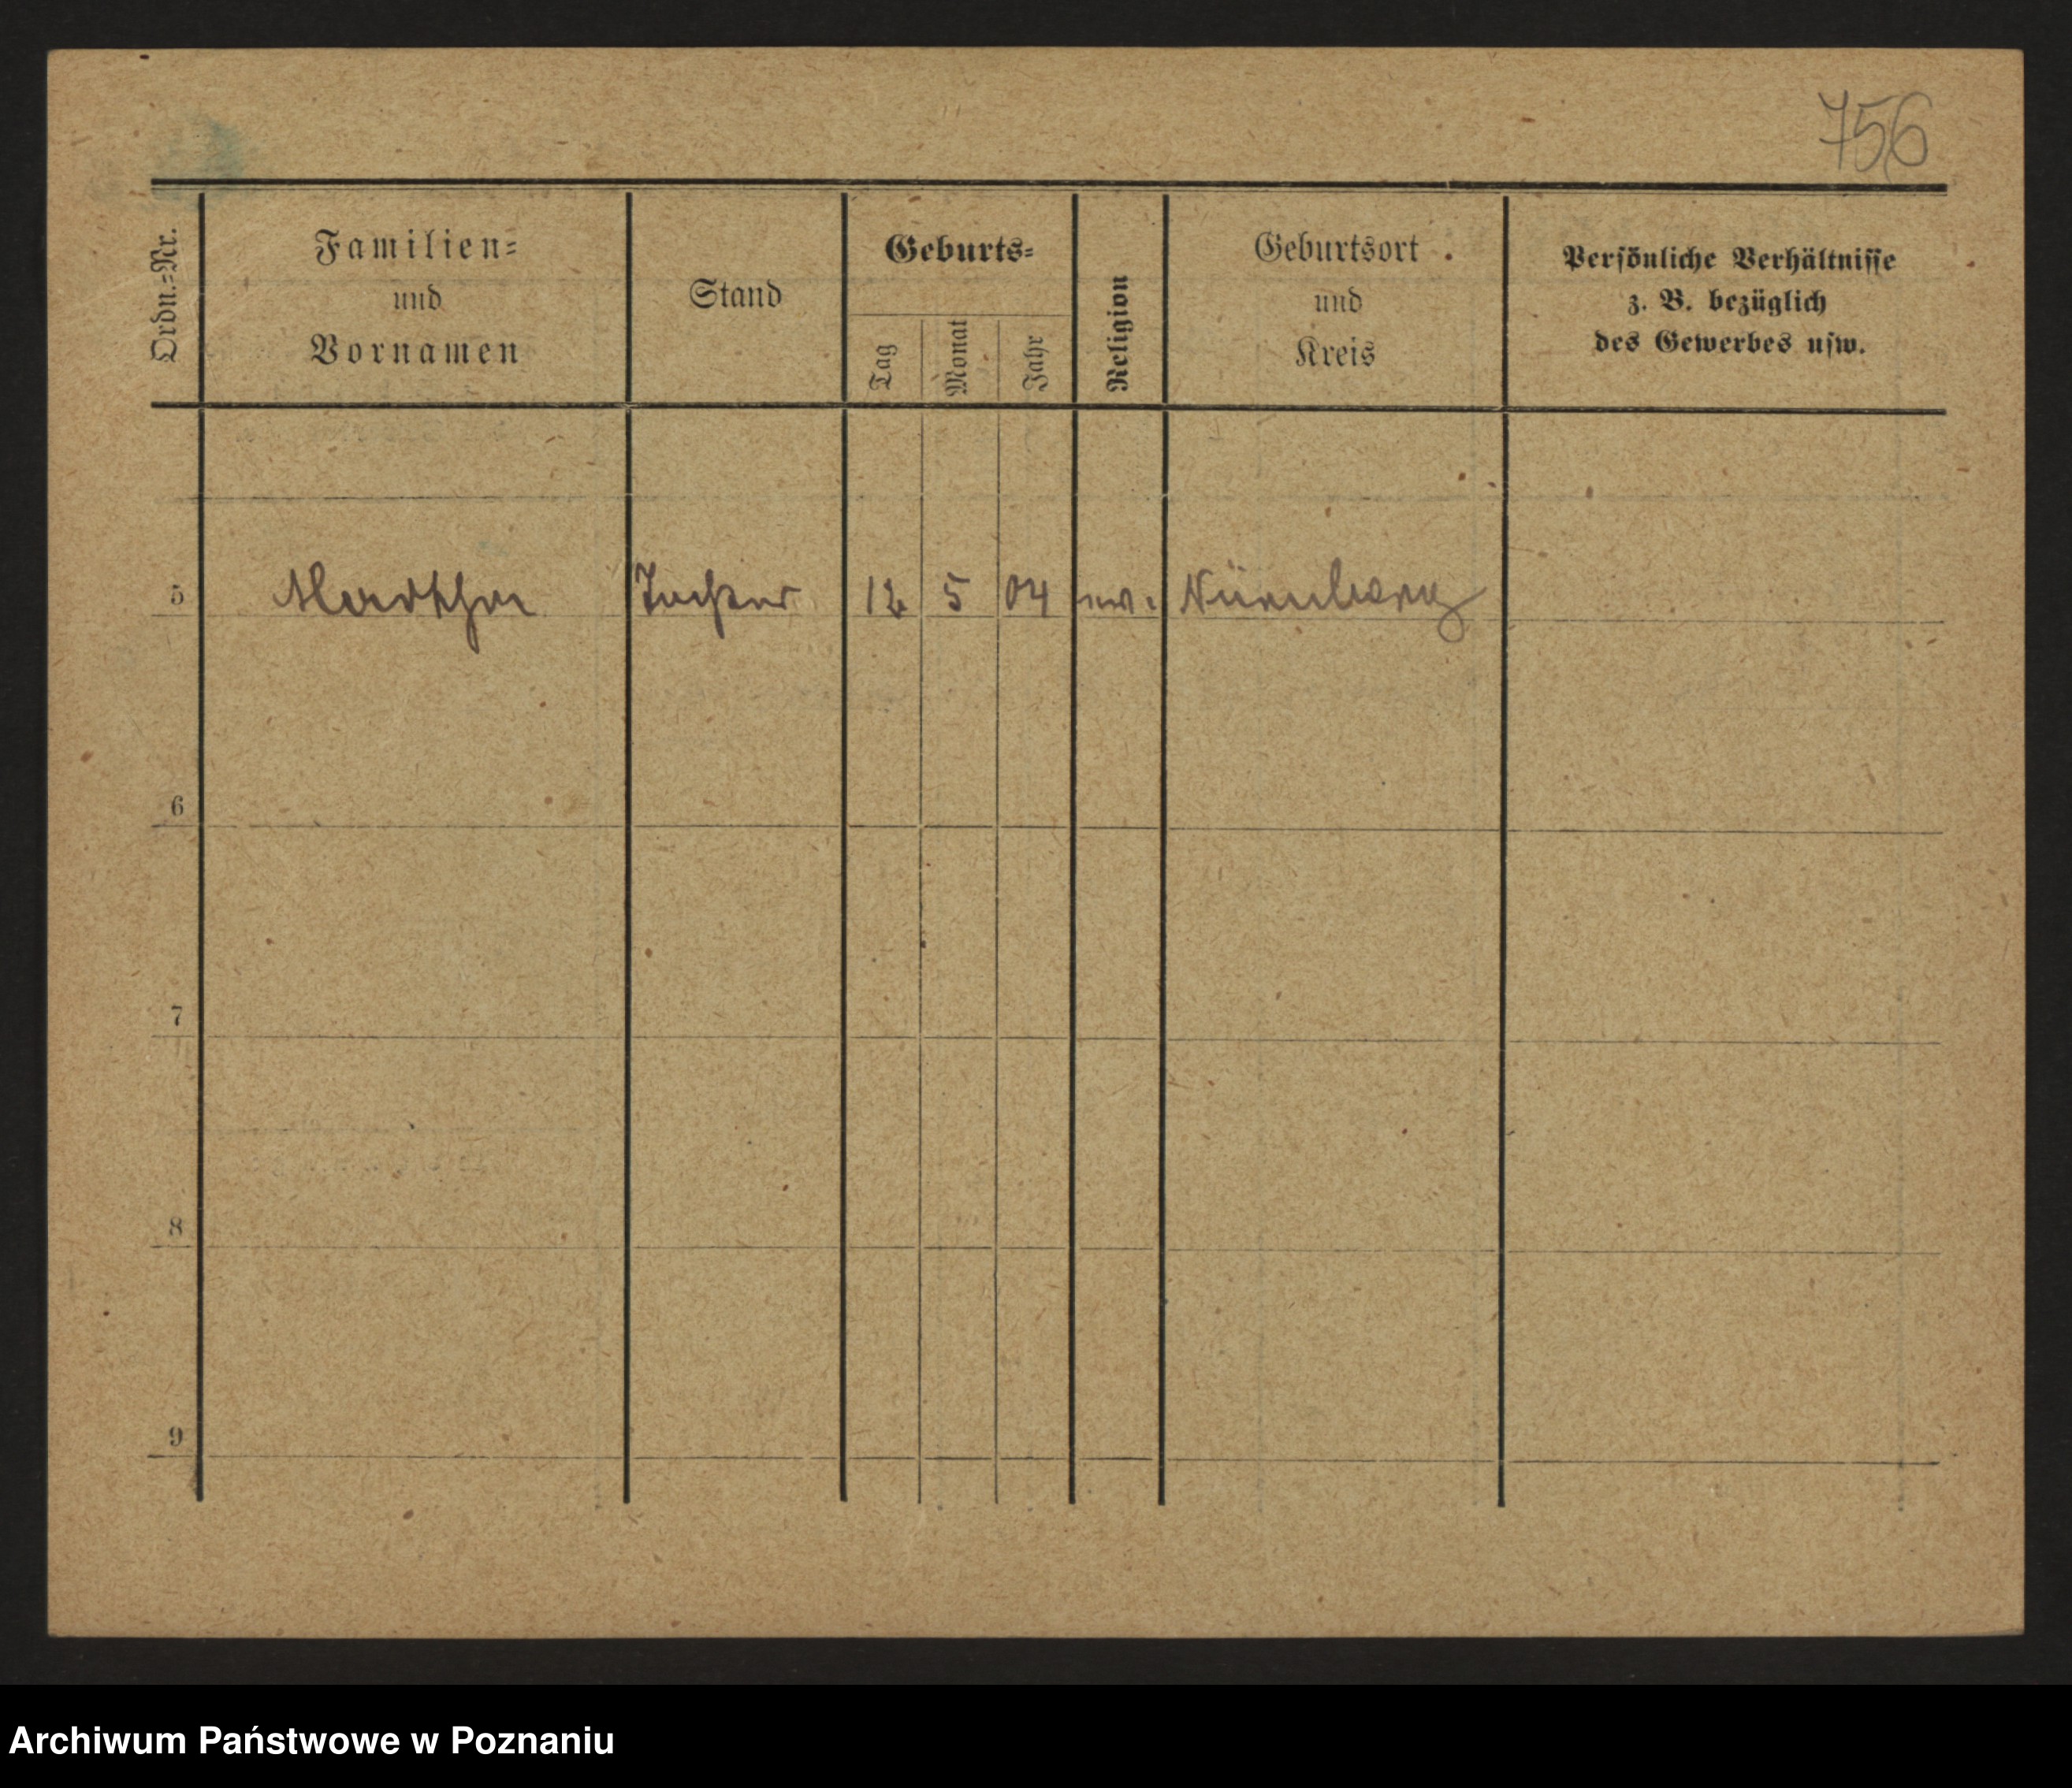 756
Ordn.=Nr.
Familien=
und
Vornamen
Stand
Geburts=
Tag
Monat
Jahr
Religion
Geburtsort
und
Kreis
Persönliche Verhältnisse
z. B. bezüglich
des Gewerbes usw.
5 Martha Tochter 12 5 04 ev. Nürnberg
6
7
8
9
Archiwum Państwowe w Poznaniu